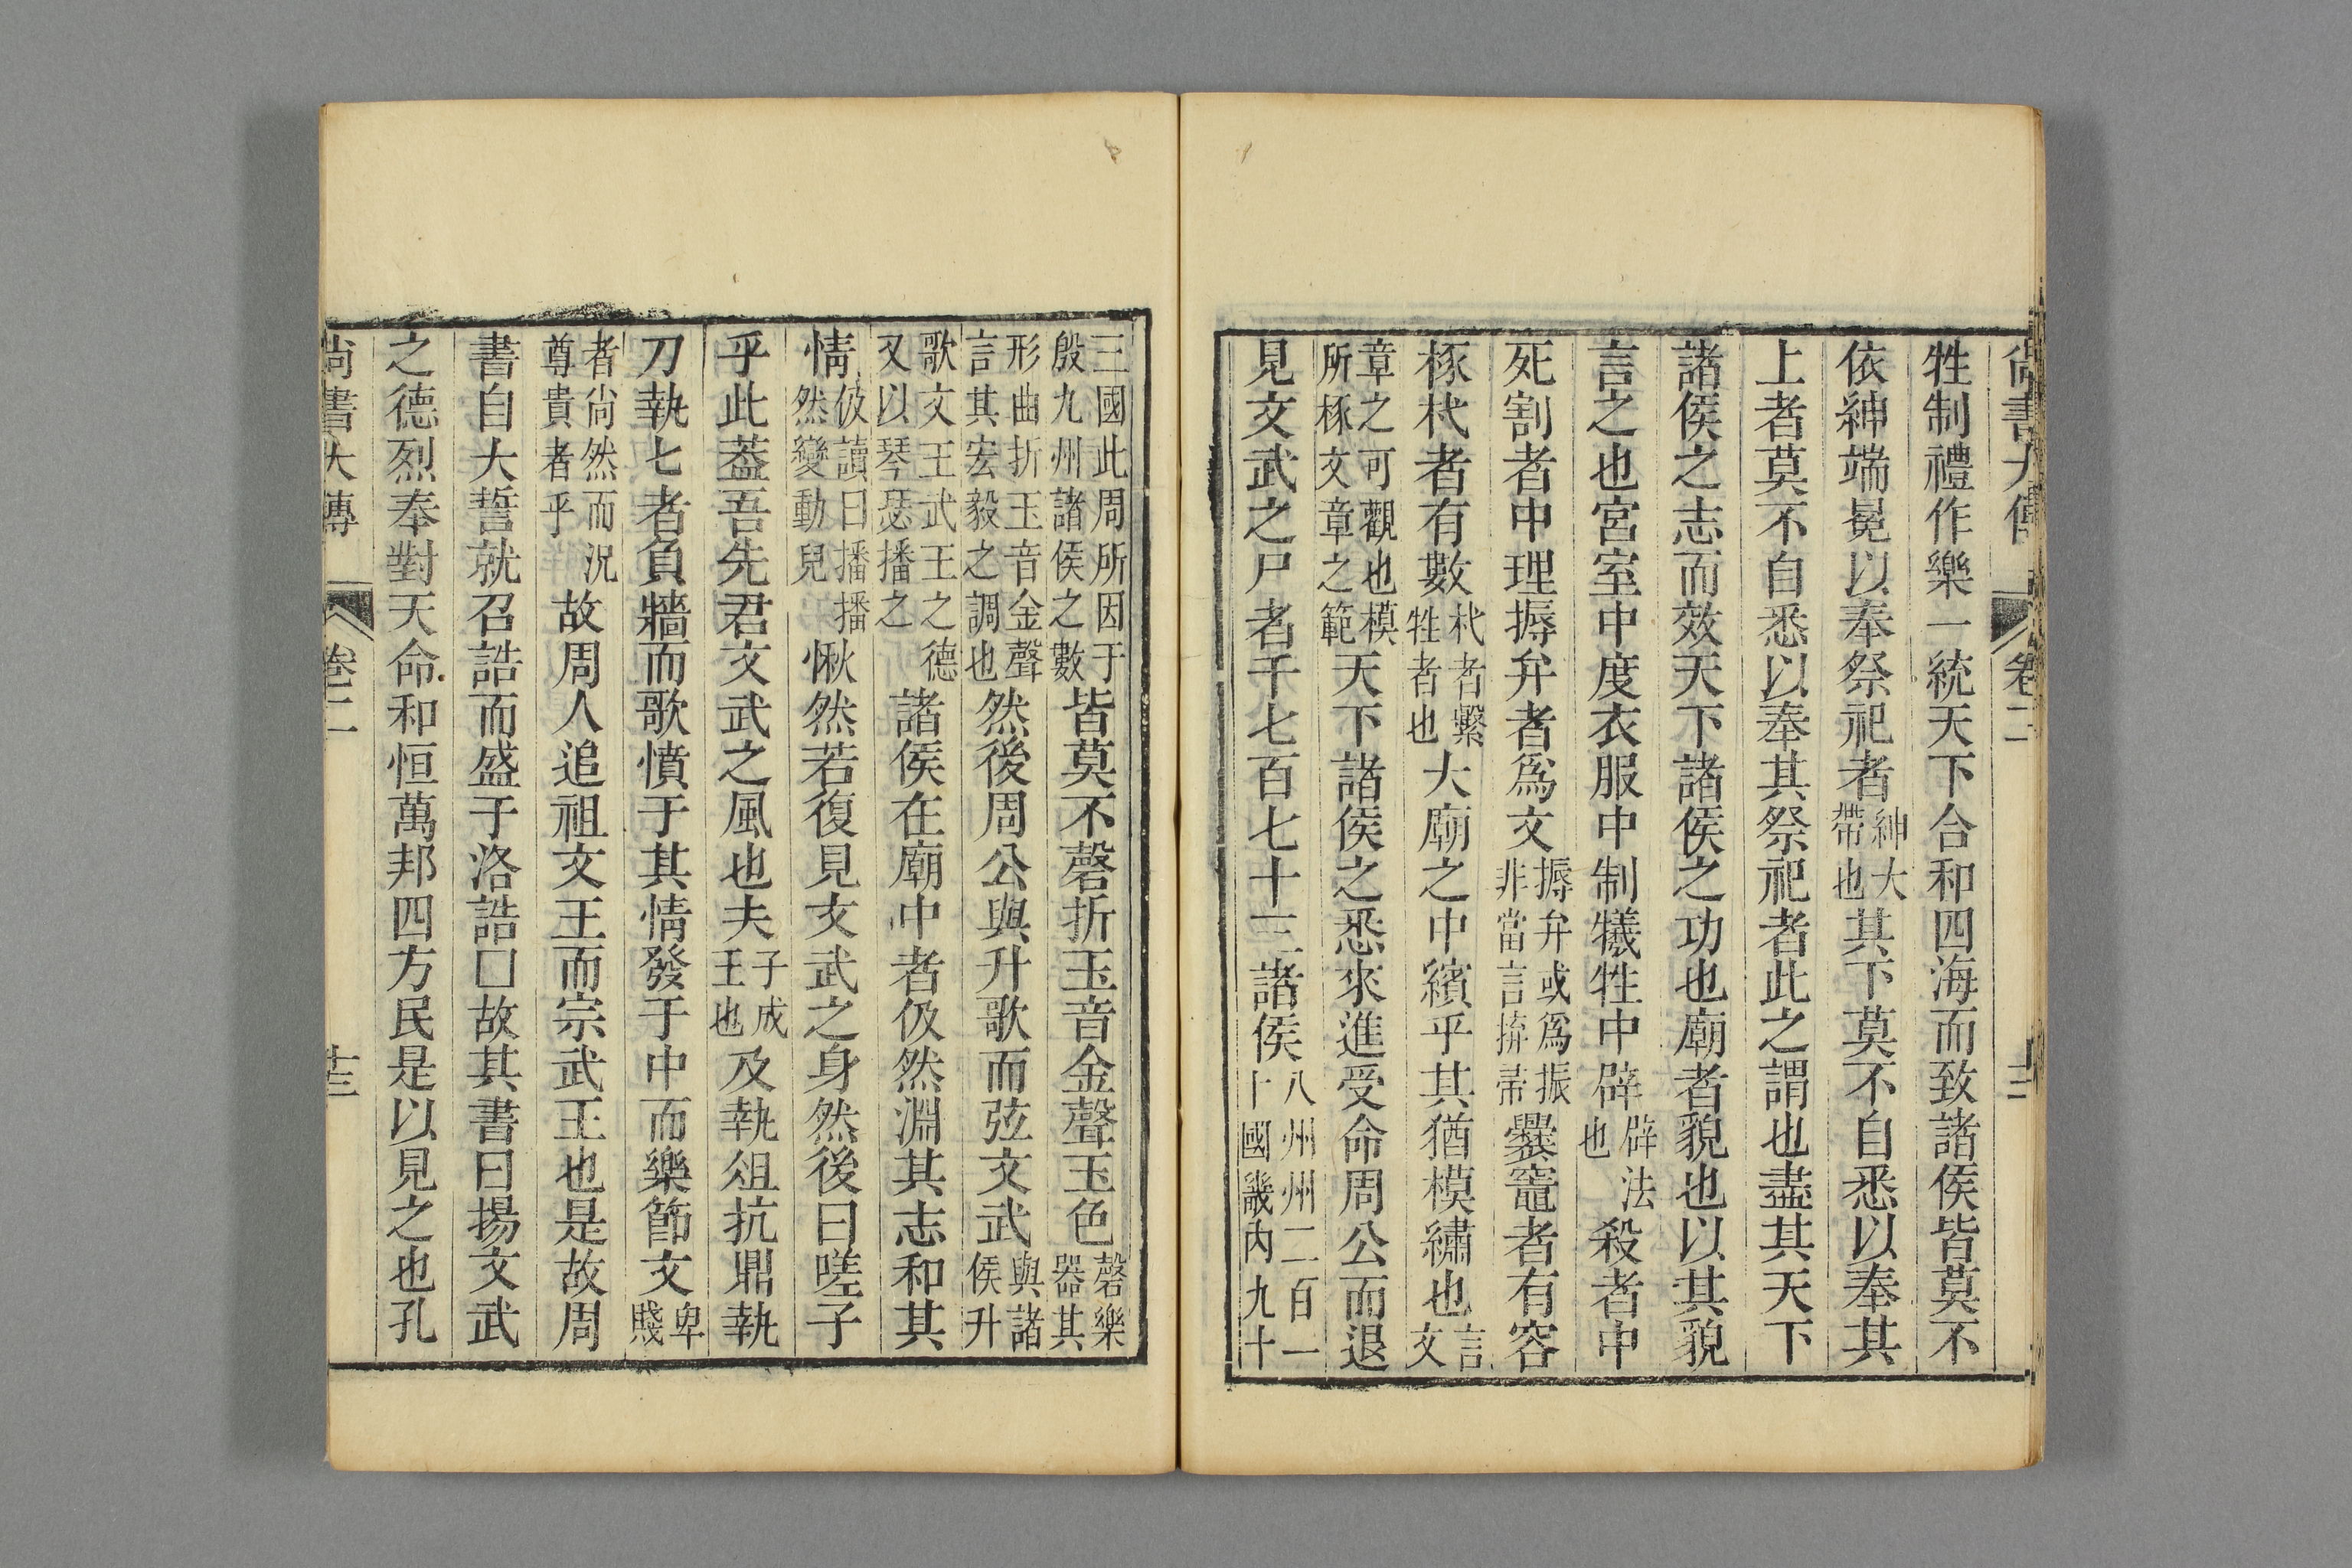 尚書大傳 卷二
牲制禮作樂一統天下合和四海而致諸侯皆莫不
依紳端冕以奉祭祀者紳大帶也其下莫不自悉以奉其
上者莫不自悉以奉其祭祀者此之謂也盡其天下
諸侯之志而效天下諸侯之功也廟者貌也以其貌
言之也宮室中度衣服中制犧牲中辟辟法也殺者中
死割者中理搙弁者爲文搙弁或爲振非當言拚帚爨竈者有容
椓杙者有數杙者繫牲者也大廟之中繽乎其猶模繡也言文
章之可觀也模所椓文章之範天下諸侯之悉來進受命周公而退
見文武之尸者千七百七十三諸侯八州州二百一十國畿內九十
三國此周所因于殷九州諸侯之數皆莫不磬折玉音金聲玉色磬樂器其
形曲折玉音金聲言其宏毅之調也然後周公與升歌而弦文武與諸侯升
歌文王武王之德又以琴瑟播之諸侯在廟中者伋然淵其志和其
情伋讀曰播播然變動皃愀然若復見文武之身然後曰嗟子
乎此蓋吾先君文武之風也夫子成王也及執俎抗鼎執
刀執匕者負牆而歌憤于其情發于中而樂節文卑賤
者尙然而況尊貴者乎故周人追祖文王而宗武王也是故周
書自大誓就召誥而盛于洛誥□故其書曰揚文武
之德烈奉對天命和恒萬邦四方民是以見之也孔
尙書大傳 卷二 十三